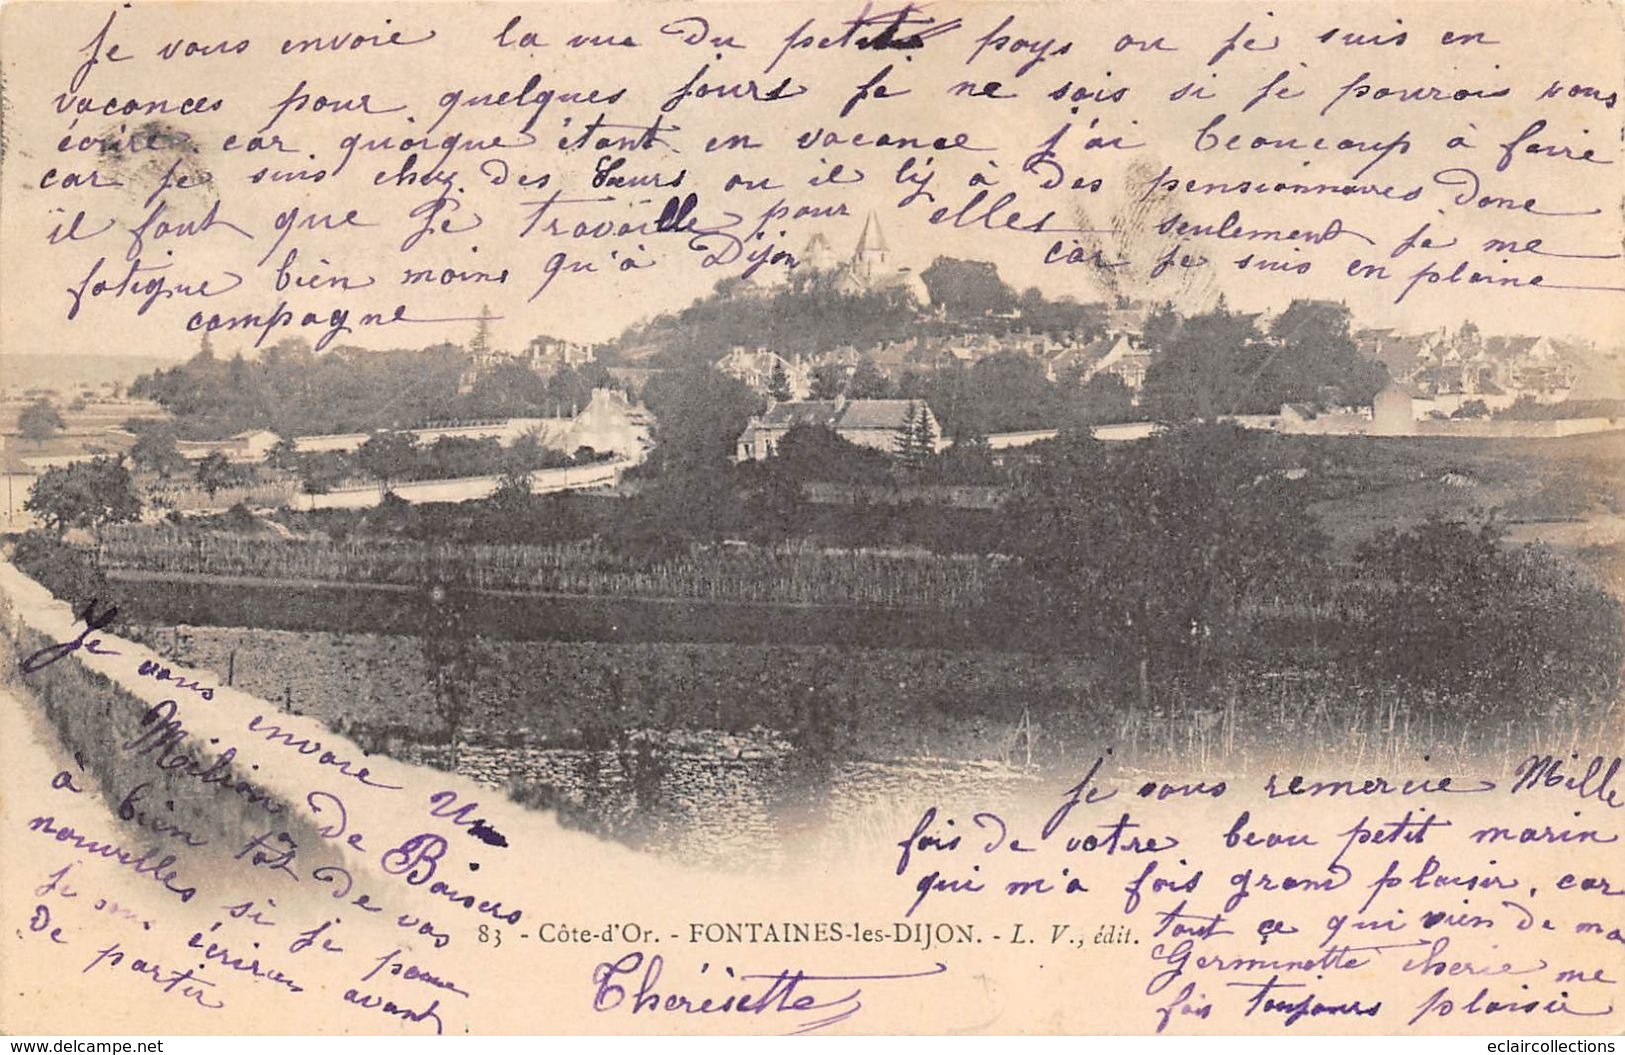 Je vous envoie la vue du petit pays ou je suis en
vacances pour quelques jours je ne sais si je pourois vous
écrire car quoique étant en vacance j'ai beaucoup à faire
car je suis chez des Sœurs ou il i'y à des pensionnaires donc
il faut que je travaille pour elles seulement je me
fatigue bien moins qu'à Dijon car je suis en plaine
campagne
Je vous envoie un
Milion de Baisers
à bien tôt de vos
nouvelles si je peux
je vous écrirai avant
de partir
Je vous remercie Mille
fois de votre beau petit marin
qui m'a fois grand plaisir, car
tout ce qui vien de ma
Germinette cherie me
fois toujours plaisir
83 - Côte-d'Or. - FONTAINES-les-DIJON. - L. V., édit.
Thérésette
www.delcampe.net
eclaircollections